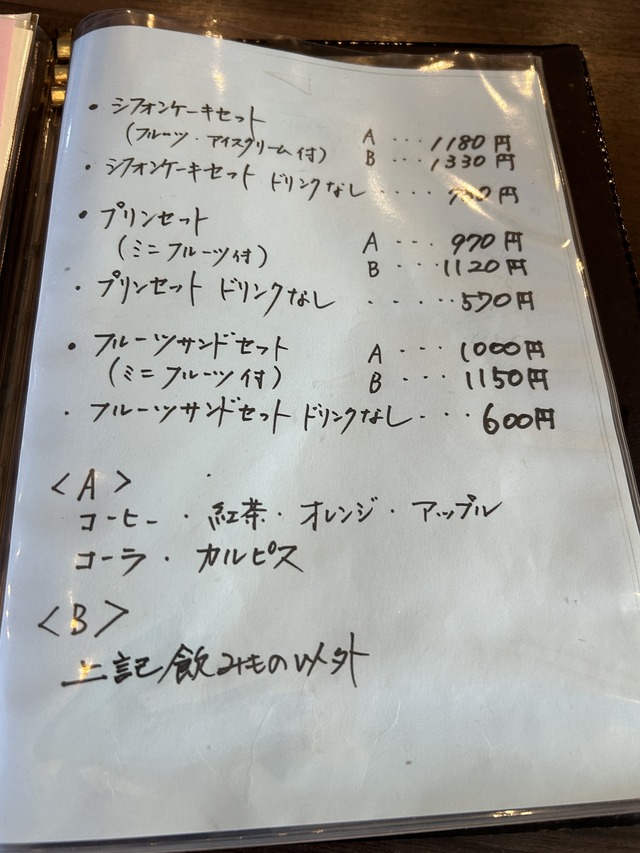 • シフォンケーキセット
(フルーツ・アイスクリーム付) A ・・・ 1180円
B ・・・ 1330円
・ シフォンケーキセット ドリンクなし ・・・・ 円
• プリンセット
(ミニフルーツ付) A ・・・ 970円
B ・・・ 1120円
・ プリンセット ドリンクなし ・・・・・ 570円
• フルーツサンドセット A ・・・ 1000円
(ミニフルーツ付) B ・・・ 1150円
・ フルーツサンドセット ドリンクなし ・・・ 600円
<A>
コーヒー ・ 紅茶 ・ オレンジ ・ アップル
コーラ ・ カルピス
<B>
上記飲みもの以外